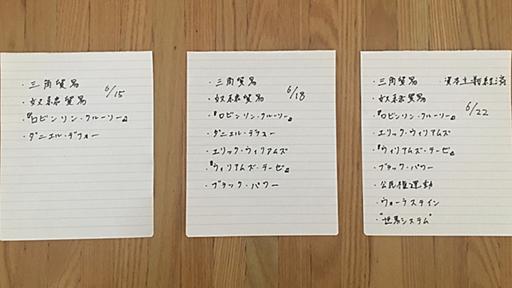 ・三角貿易
・奴隷貿易
6/15
・『ロビンソン・クルーソー』
・ダニエル・デフォー
・三角貿易
・奴隷貿易
6/18
・『ロビンソン・クルーソー』
・ダニエル・デフォー
・エリック・ウィリアムズ
・『ウィリアムズ・テーゼ』
・ブラック・パワー
・三角貿易 資本主義経済
・奴隷貿易
6/22
・『ロビンソン・クルーソー』
・エリック・ウィリアムズ
・『ウィリアムズ・テーゼ』
・ブラック・パワー
・公民権運動
・ウォーラステイン
・"世界システム"